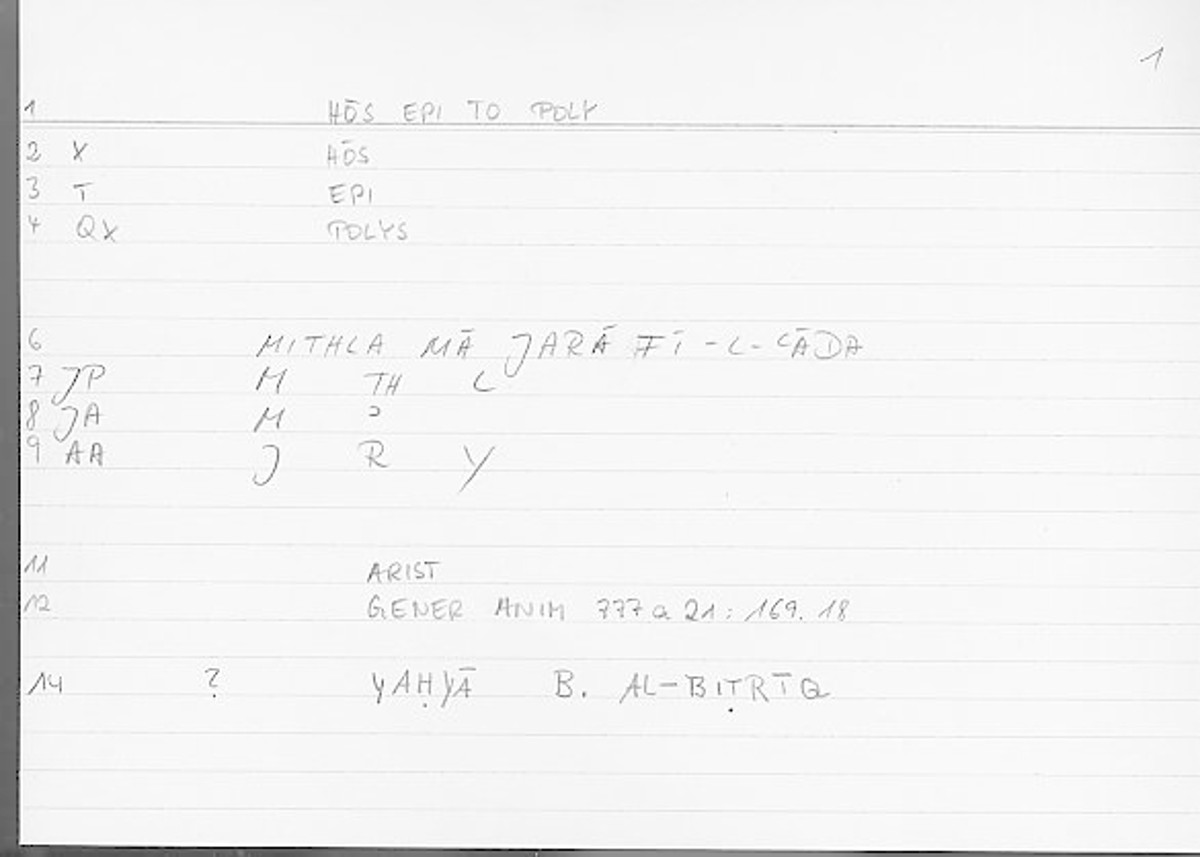 1
1 HŌS EPI TO POLY
2 X HŌS
3 T EPI
4 QX POLYS
6 MITHLA MĀ JARĀ FĪ-L-ʿĀDA
7 JP M TH L
8 JA M ʾ
9 AA J R Y
11 ARIST
12 GENER ANIM 777 a 21: 169.18
14 ? YAḤYĀ B. AL-BIṬRĪQ